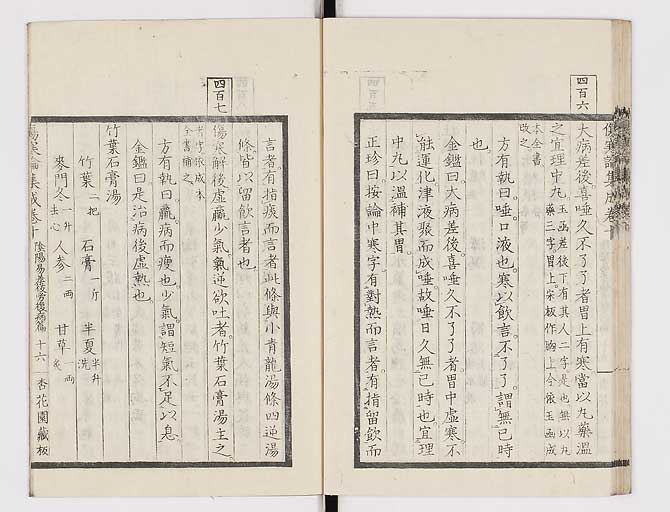 四百六
大病差後。喜唾久不了了者胃上有寒當以丸藥溫
之宜理中丸。玉函差後下有其人二字是也無以丸
藥三字胃上。宋板作胸上今依玉函成
本全書
改之
方有執曰。唾口液也。寒以飲言不了了。謂無已時
也
金鑑曰。大病差後喜唾久不了了者胃中虛寒不
能運化津液聚而成唾。故唾日久無已時也宜理
中丸以溫補其胃。
正珍曰按論中寒字有對熱而言者。有指留飲而
傷寒論集成卷十
言者有指痰而言者此條與小青龍湯條四逆湯
條。皆以留飲言者也
四百七
傷寒解後虛羸少氣。氣逆欲吐者。竹葉石膏湯主之
全書補之
方有執曰。羸病而瘦也少氣。謂短氣不足以息
金鑑曰是治病後虛熱也
竹葉石膏湯
竹葉二把 石膏一斤 半夏半升洗
麥門冬一升去心 人參二兩 甘草一兩炙
傷寒論集成卷十 陰陽易差後勞復病篇 十六 杏花園藏板